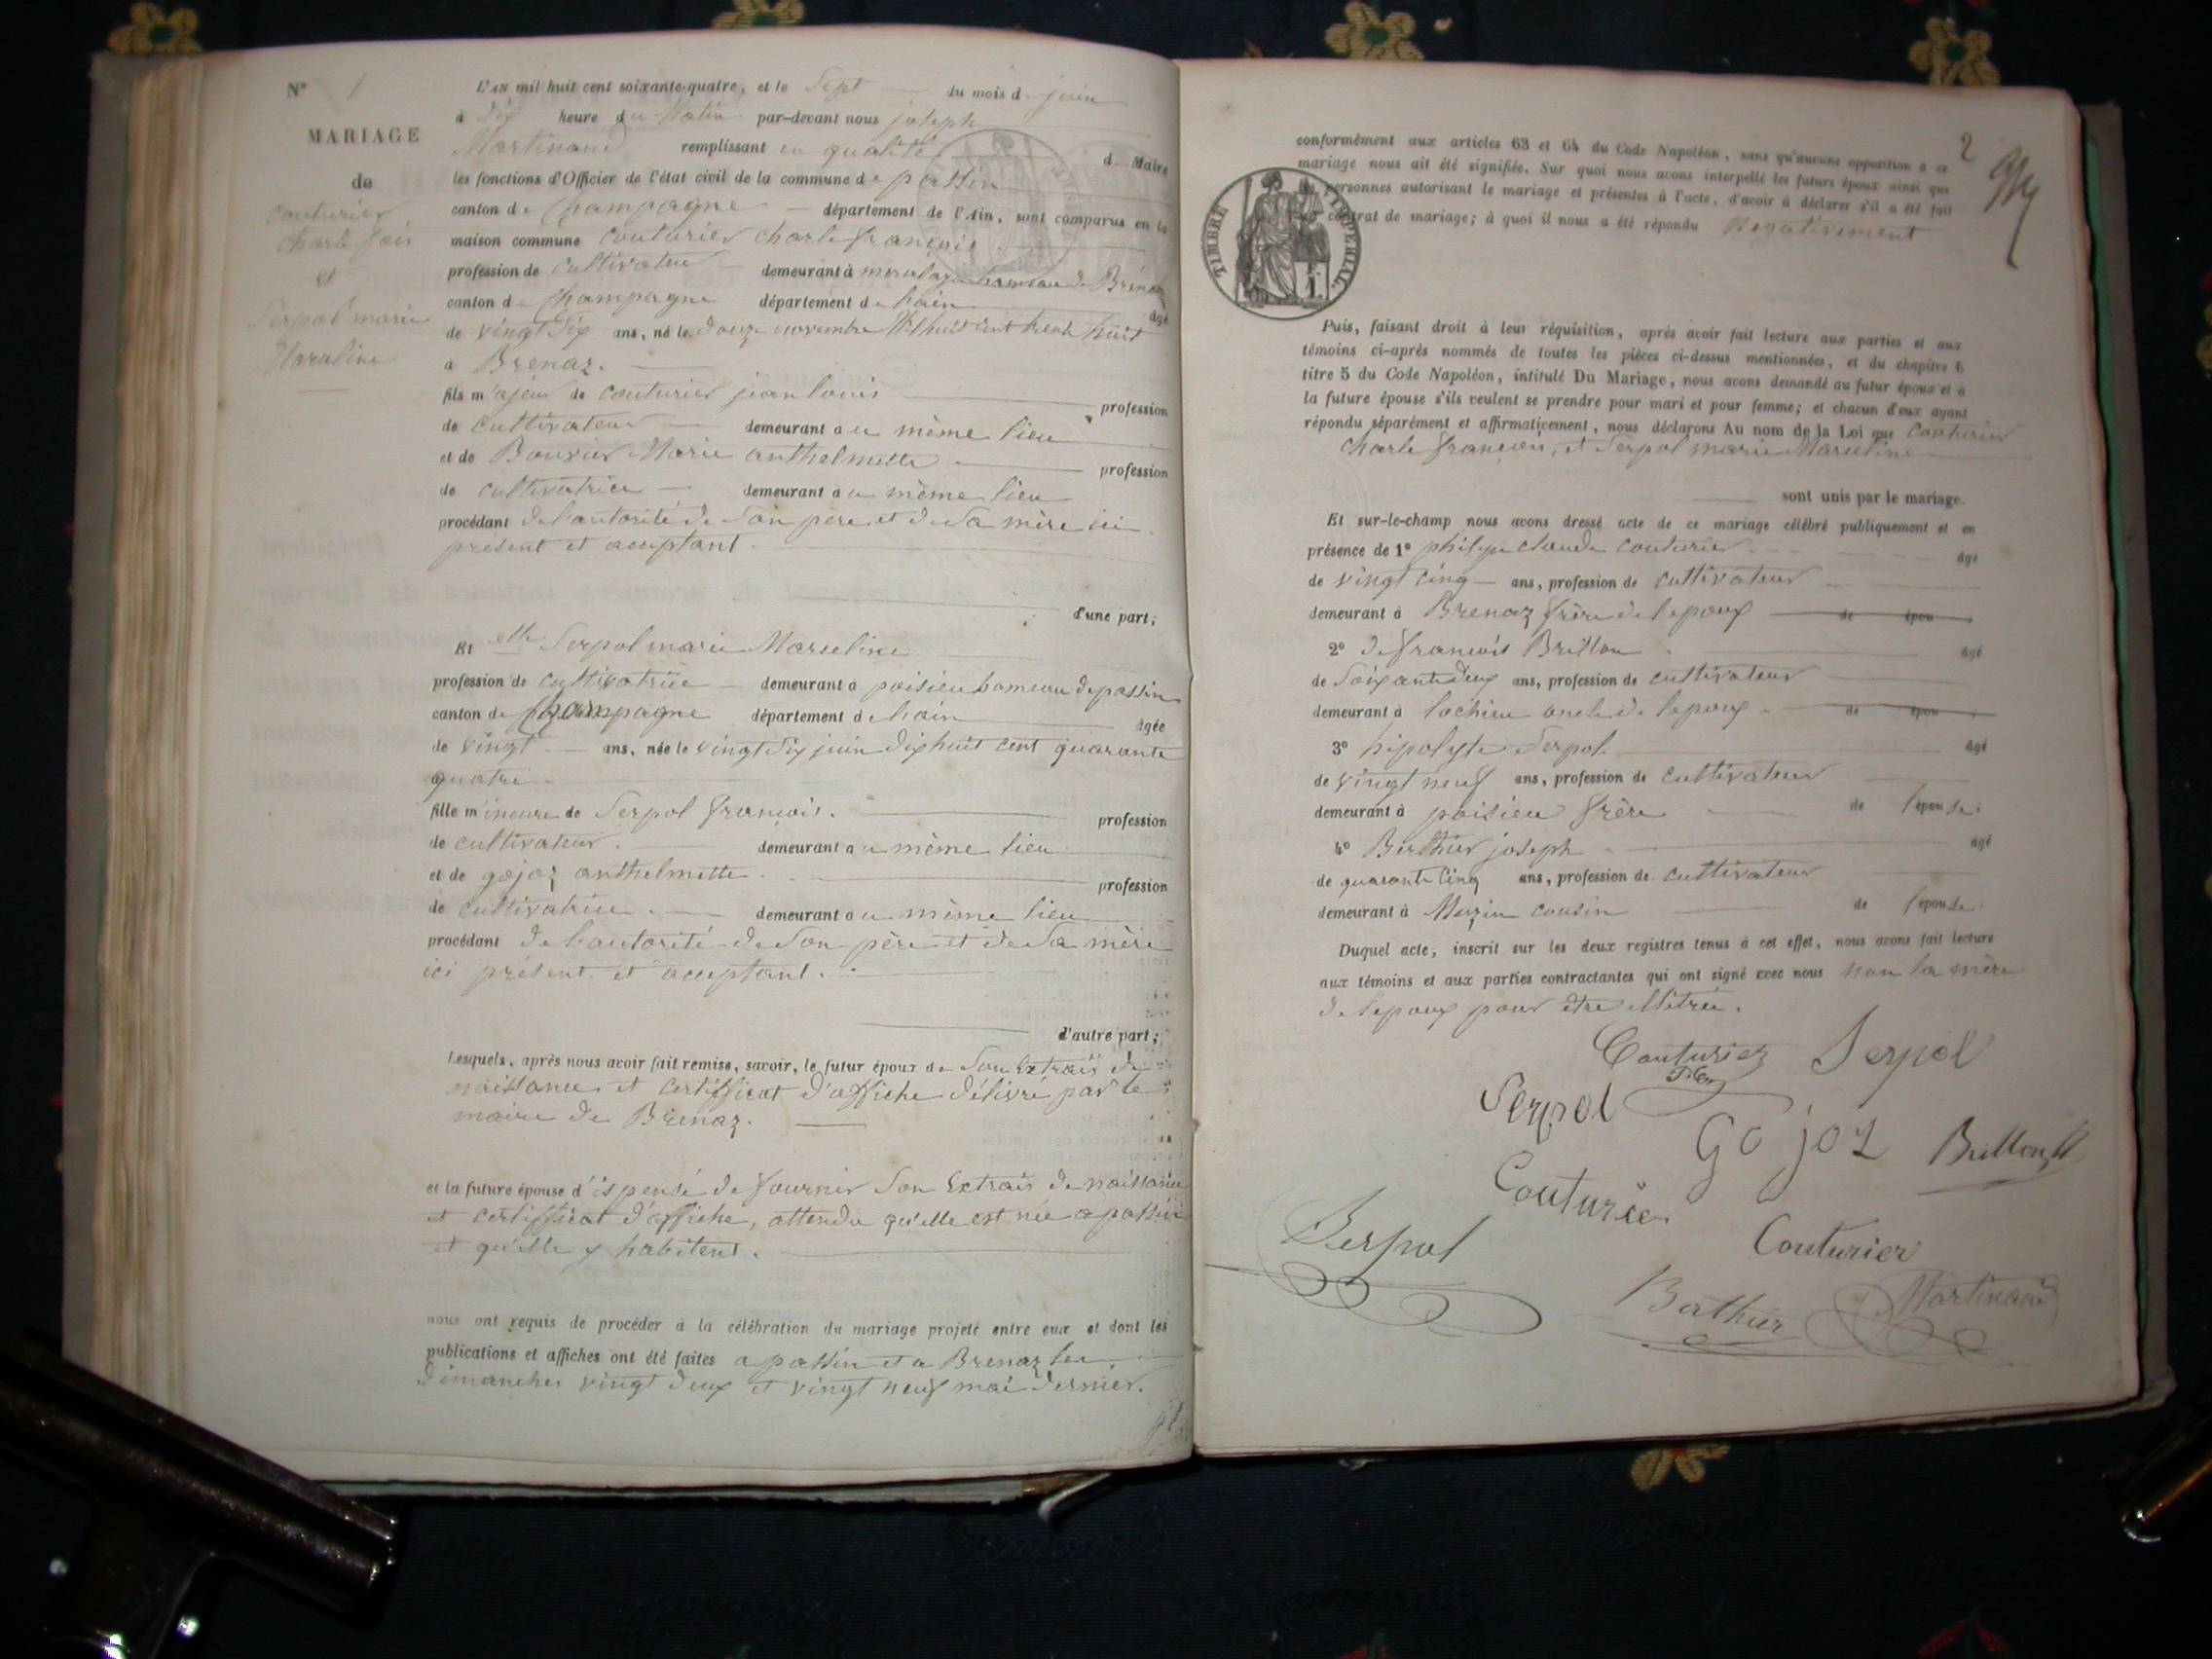 N° 1
MARIAGE
de
couturier
charle fois
et
Serpol marie
Marceline
L'AN mil huit cent soixante-quatre, et le Sept du mois de juin
à dix heure du Matin par-devant nous joseph
Martinand remplissant en qualité de Maire
les fonctions d'Officier de l'état civil de la commune de passin
canton de Champagne département de l'Ain, sont comparus en la
maison commune couturier charle françois
profession de cultivateur demeurant à hameau de Brénaz
canton de Champagne département de lain âgé
de vingt six ans, né le douze novembre Mil huit cent trente huit
à Brenaz.
fils majeur de couturier jean louis profession
de cultivateur demeurant au même lieu
et de Bouvier Marie anthelmette profession
de cultivatrice demeurant au même lieu
procédant de l'autorité de Son père et de Sa mère ici
présent et acceptant.
d'une part;
Et elle Serpol marie Marceline
profession de cultivatrice demeurant à poisieu hameau de passin
canton de Champagne département de lain âgée
de vingt ans, née le vingt Six juin dix huit cent quarante
quatre
fille mineure de Serpol françois. profession
de cultivateur. demeurant au même lieu
et de gojoz anthelmette. profession
de cultivatrice. demeurant au même lieu
procédant de l'autorité de Son père et de Sa mère
ici présent et acceptant.
d'autre part;
Lesquels, après nous avoir fait remise, savoir, le futur époux de Son Extrais de
naissance et certifficat d'affiche délivré par le
maire de Brenaz.
et la future épouse d'ispensé de fournir Son Extrais de naissance
et certifficat d'affiche, attendu qu'elle est née a passin
et qu'elle y habitent.
nous ont requis de procéder à la célébration du mariage projeté entre eux et dont les
publications et affiches ont été faites a passin et a Brenaz les
dimanches vingt deux et vingt neuf mai dernier.
2
conformément aux articles 63 et 64 du Code Napoléon, sans qu'aucune opposition à ce
mariage nous ait été signifiée. Sur quoi nous avons interpellé les futurs époux ainsi que
les personnes autorisant le mariage et présentes à l'acte, d'avoir à déclarer s'il a été fait
contrat de mariage; à quoi il nous a été répondu Negativement
TIMBRE IMPERIAL
Puis, faisant droit à leur réquisition, après avoir fait lecture aux parties et aux
témoins ci-après nommés de toutes les pièces ci-dessus mentionnées, et du chapitre 6
titre 5 du Code Napoléon, intitulé Du Mariage, nous avons demandé au futur époux et à
la future épouse s'ils veulent se prendre pour mari et pour femme; et chacun d'eux ayant
répondu séparément et affirmativement, nous déclarons Au nom de la Loi que Couturier
Charle françois, et Serpol marie Marceline
sont unis par le mariage.
Et sur-le-champ nous avons dressé acte de ce mariage célébré publiquement et en
présence de 1° philipe claude couturier âgé
de vingt cinq ans, profession de cultivateur
demeurant à Brenaz frère de lepoux de épou
2° de françois Brillon âgé
de Soixante deux ans, profession de cultivateur
demeurant à lochieu oncle de lepoux de épou
3° hipolyte Serpol âgé
de vingt neuf ans, profession de cultivateur
demeurant à poisieu frère de l'épouse
4° Berthier joseph âgé
de quarante cinq ans, profession de cultivateur
demeurant à Muzin cousin de l'épouse
Duquel acte, inscrit sur les deux registres tenus à cet effet, nous avons fait lecture
aux témoins et aux parties contractantes qui ont signé avec nous non la mère
de lepoux pour être illétrée.
Couturier Serpol
Serpol
Gojoz Brillon
Couturier
Serpol Couturier
Berthier Martinand